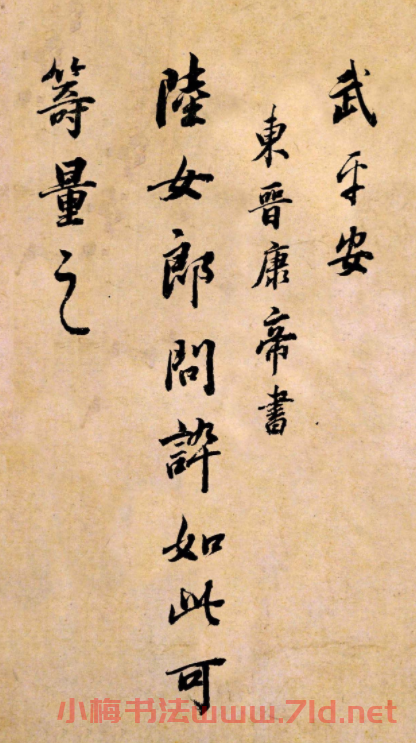 武平安
東晉康帝書
陸女郎問誶如此可
籌量之
小梅书法www.7ld.net